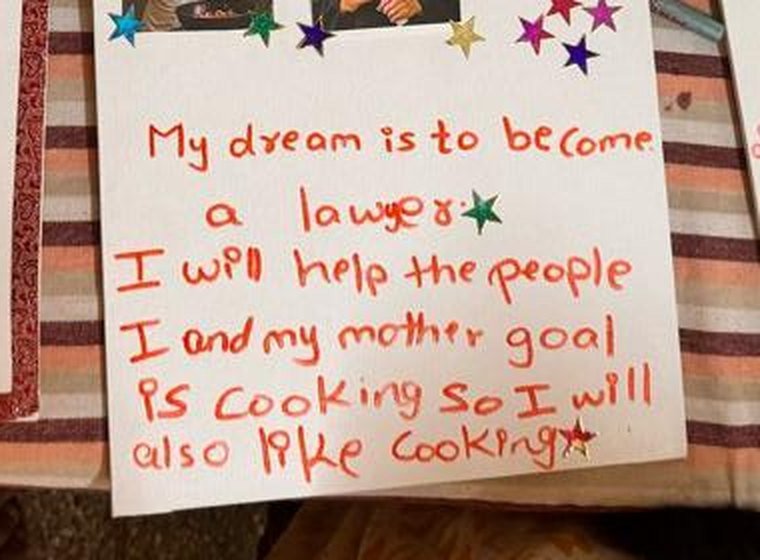 My dream is to become
a lawyer.
I will help the people
I and my mother goal
is cooking so I will
also like cooking